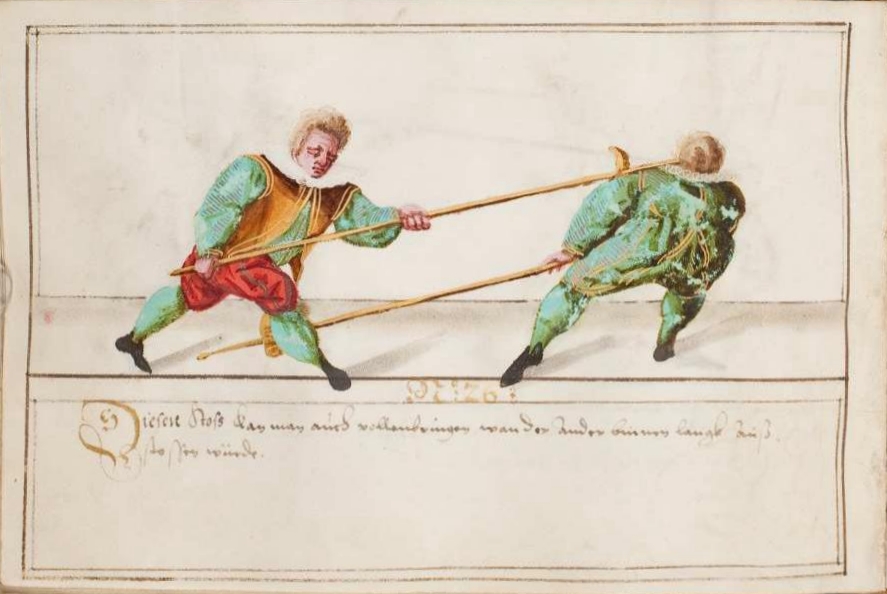 N: 26:
Diesen Stoss kan man auch vollenbringen wan der Ander binnen langk auß
stossen würde.